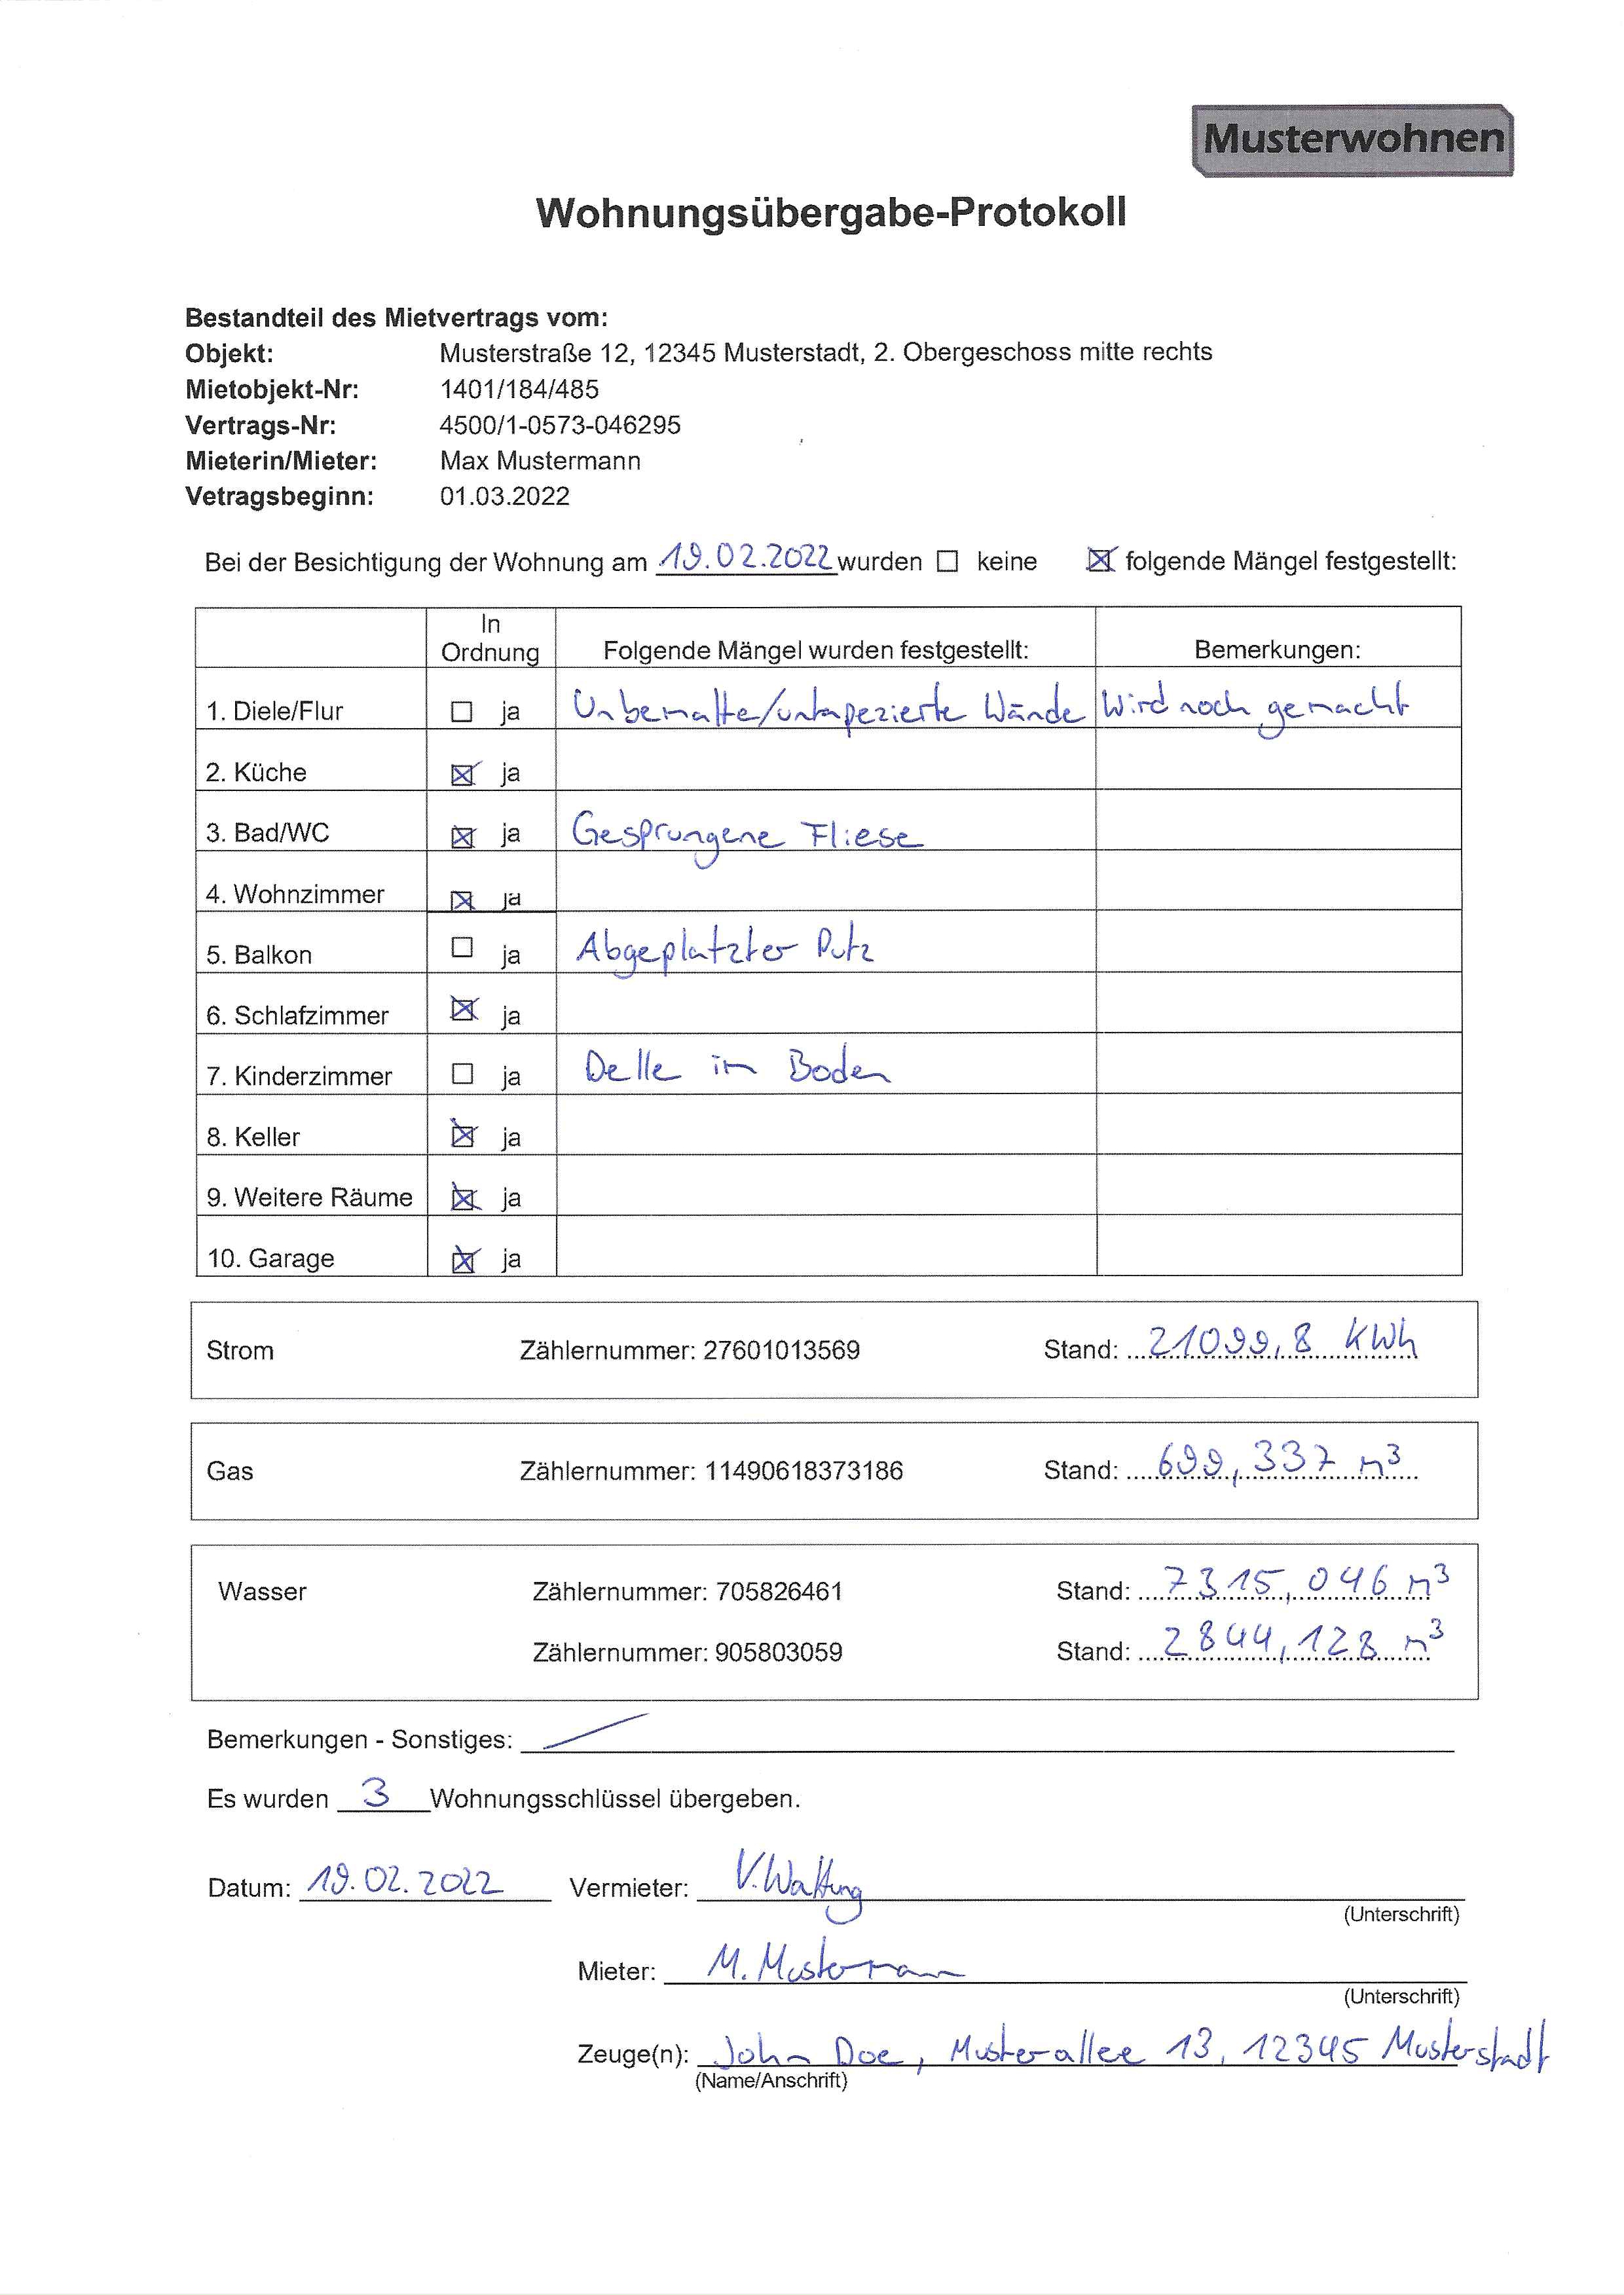 Musterwohnen
Wohnungsübergabe-Protokoll
Bestandteil des Mietvertrags vom:
Objekt: Musterstraße 12, 12345 Musterstadt, 2. Obergeschoss mitte rechts
Mietobjekt-Nr: 1401/184/485
Vertrags-Nr: 4500/1-0573-046295
Mieterin/Mieter: Max Mustermann
Vetragsbeginn: 01.03.2022
Bei der Besichtigung der Wohnung am 19.02.2022 wurden ☐ keine ☒ folgende Mängel festgestellt:
In
Ordnung Folgende Mängel wurden festgestellt: Bemerkungen:
1. Diele/Flur ☐ ja Unbemalte/untapezierte Wände Wird noch gemacht
2. Küche ☒ ja
3. Bad/WC ☒ ja Gesprungene Fliese
4. Wohnzimmer ☒ ja
5. Balkon ☐ ja Abgeplatzter Putz
6. Schlafzimmer ☒ ja
7. Kinderzimmer ☐ ja Delle im Boden
8. Keller ☒ ja
9. Weitere Räume ☒ ja
10. Garage ☒ ja
Strom Zählernummer: 27601013569 Stand: 21099,8 KWh
Gas Zählernummer: 11490618373186 Stand: 699,337 m³
Wasser Zählernummer: 705826461 Stand: 7315,046 m³
Zählernummer: 905803059 Stand: 2844,128 m³
Bemerkungen - Sonstiges:
Es wurden 3 Wohnungsschlüssel übergeben.
Datum: 19.02.2022 Vermieter: V. Wattung
(Unterschrift)
Mieter: M. Mustermann
(Unterschrift)
Zeuge(n): John Doe, Musterallee 13, 12345 Musterstadt
(Name/Anschrift)